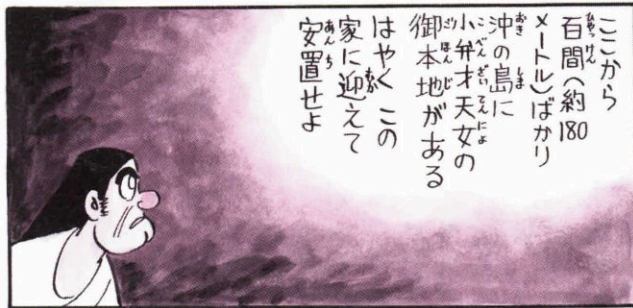 ここから
百間(約180
メートル)ばかり
沖の島に
小弁才天女の
御本地がある
はやく この
家に迎えて
安置せよ